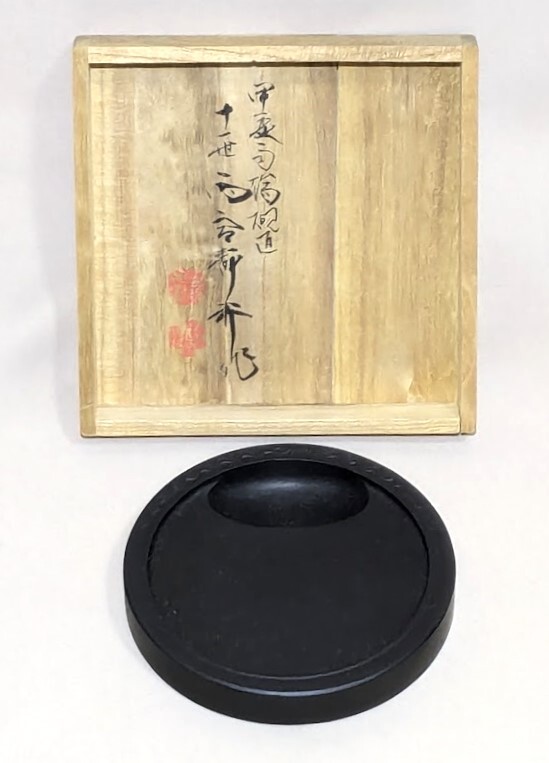 甲斐雨端硯道
十一世雨宮静軒作